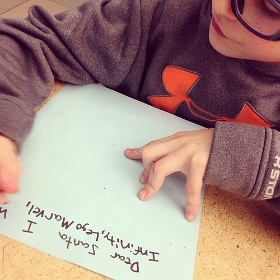 Dear Santa I
Infinity, Lego Marvel,